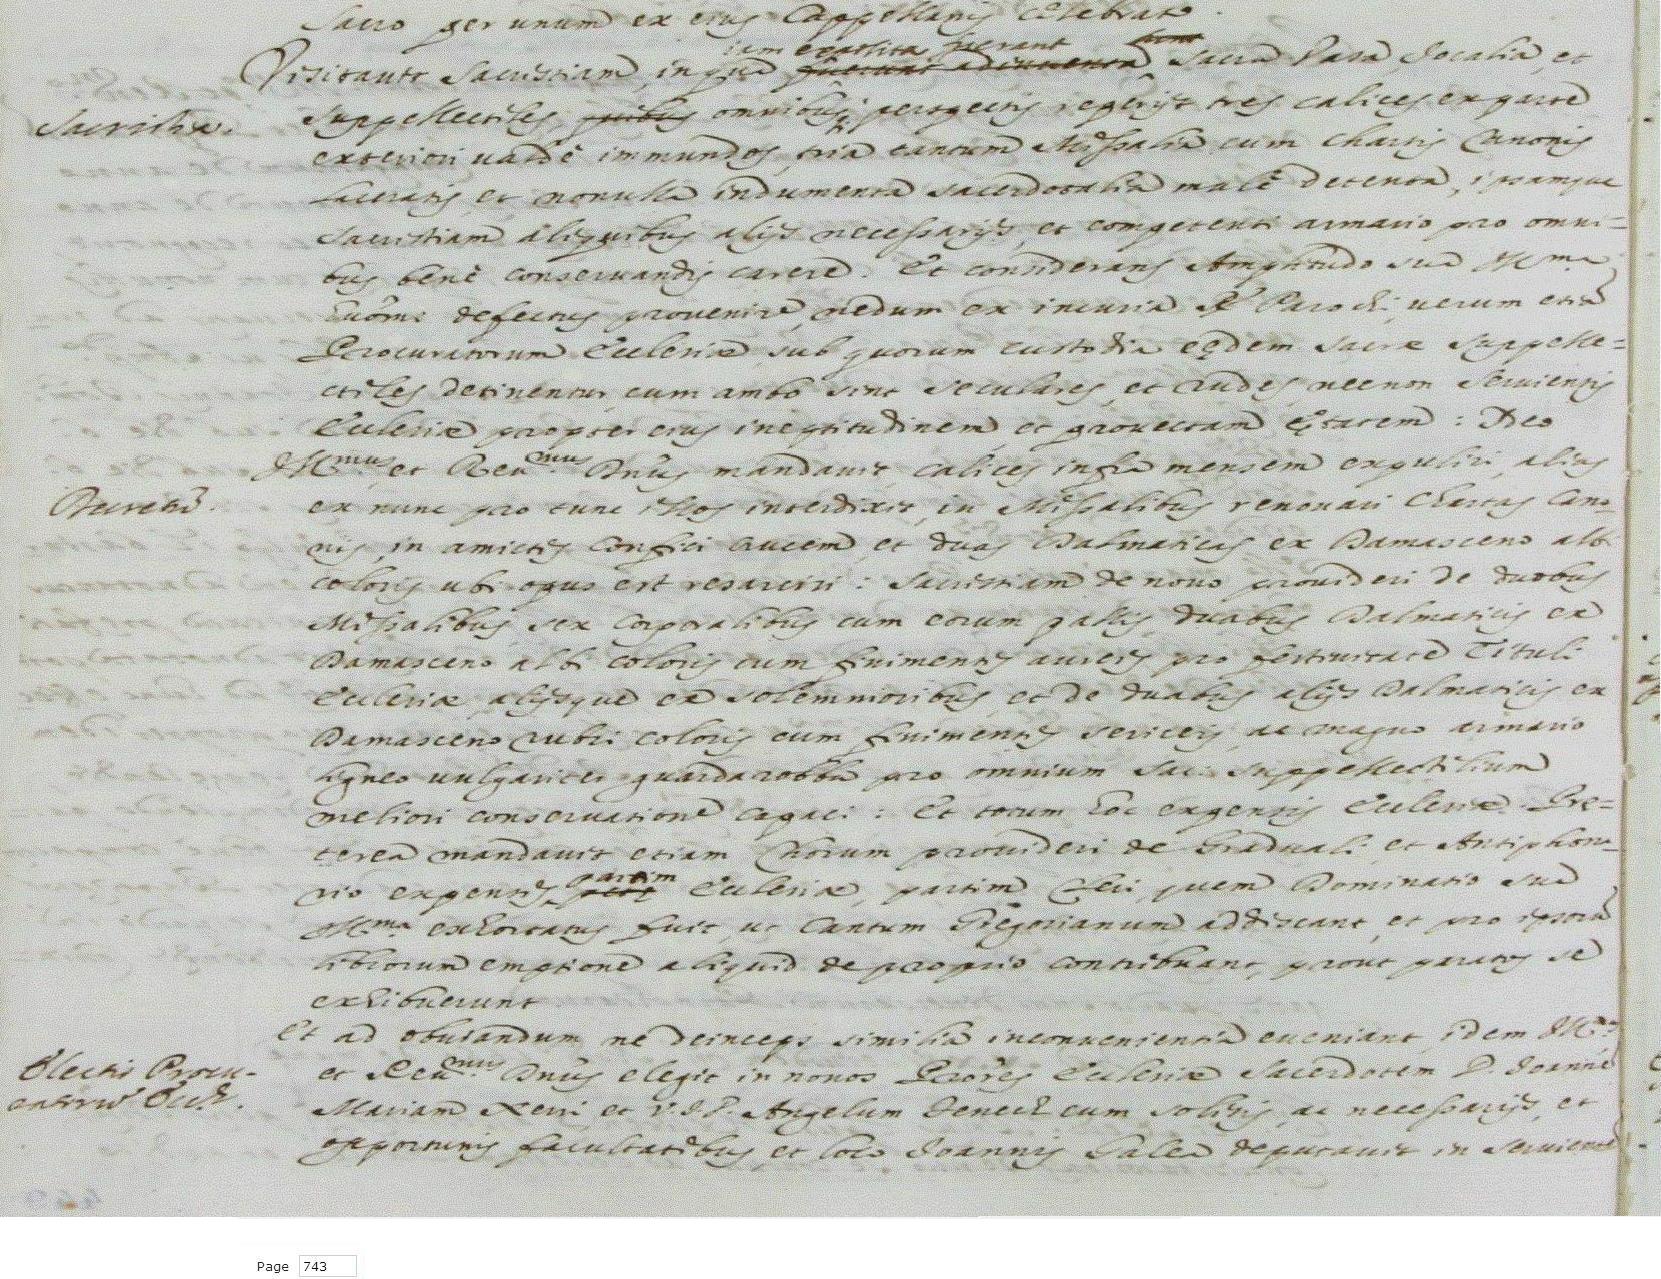 sacro per unum ex eius Cappellanis celebrato.
iam exposita fuerant
Visitavit Sacristiam, in qua fuerunt adinventa sacra Vasa, Jocalia, et
Sacristia.
suppellectiles, quibus omnibus perspectis reperijt tres calices ex parte
exteriori valdè immundos, tria tantum Missalia cum chartis Canonis
laceratis, et nonulla indumenta sacerdotalia malè detenta, ipsamque
Sacristiam aliquibus alijs necessarijs, et competenti armario pro omni=
bus benè conservandis carere. Et considerans Amplitudo sua Ill.ma
huiusmodi defectus provenire, nedum ex incuria R. Parochi, verum etiã
Procuratorum Ecclesiæ, sub quorum custodia eędem sacræ suppelle=
ctiles detinentur cum ambo sint seculares, et rudes, necnon servientis
Ecclesiæ propter eius ineptitudinem, et provectam ętatem: Ideo
Ill.mus et Rev.mus Dnũs mandavit calices infra mensem expoliri, alias
Decreta.
ex nunc pro tunc illos interdixit, in Missalibus renovari Chartas Cano
nis, in amictis confici crucem, et duas Dalmaticas ex Damasceno albi
coloris ubi opus est resarciri: Sacristiam de novo provideri de duobus
Missalibus, sex Corporalibus cum eorum pallis, duabus Dalmaticis ex
Damasceno albi coloris cum finimentis aureis pro festivitate Tituli
Ecclesiæ, alijsque ex solemnioribus, et de duabus alijs Dalmaticis ex
Damasceno rubri coloris cum finimentis sericeis, ac magno armario
ligneo vulgariter guardarobba pro omnium sac. suppellectilium
meliori conservatione capaci: Et totum hoc expensis Ecclesiæ. Pre=
terea mandavit etiam Chorum provideri de Graduali, et Antiphona=
partim
rio expensis Ecclesiæ, partim Cleri, quem Dominatio sua
Ill.ma exhortatus fuit, ut Cantum Gregorianum addiscant, et pro ipsorũ
librorum emptione aliquid de proprio contribuant, prout paratos se
exhibuerunt
Et ad obviandum ne deinceps similia inconvenientia eveniant, idem Ill.mus
Electi Procu-
et Rev.mus Dnũs elegit in novos Procres Ecclesiæ Sacerdotem D. Joannẽ
Mariam Xerri, et Angelum cum solitis, ac necessarijs, et
opportunis facultatibus, et loco Joannis Galea deputavit in servientẽ
Page 743